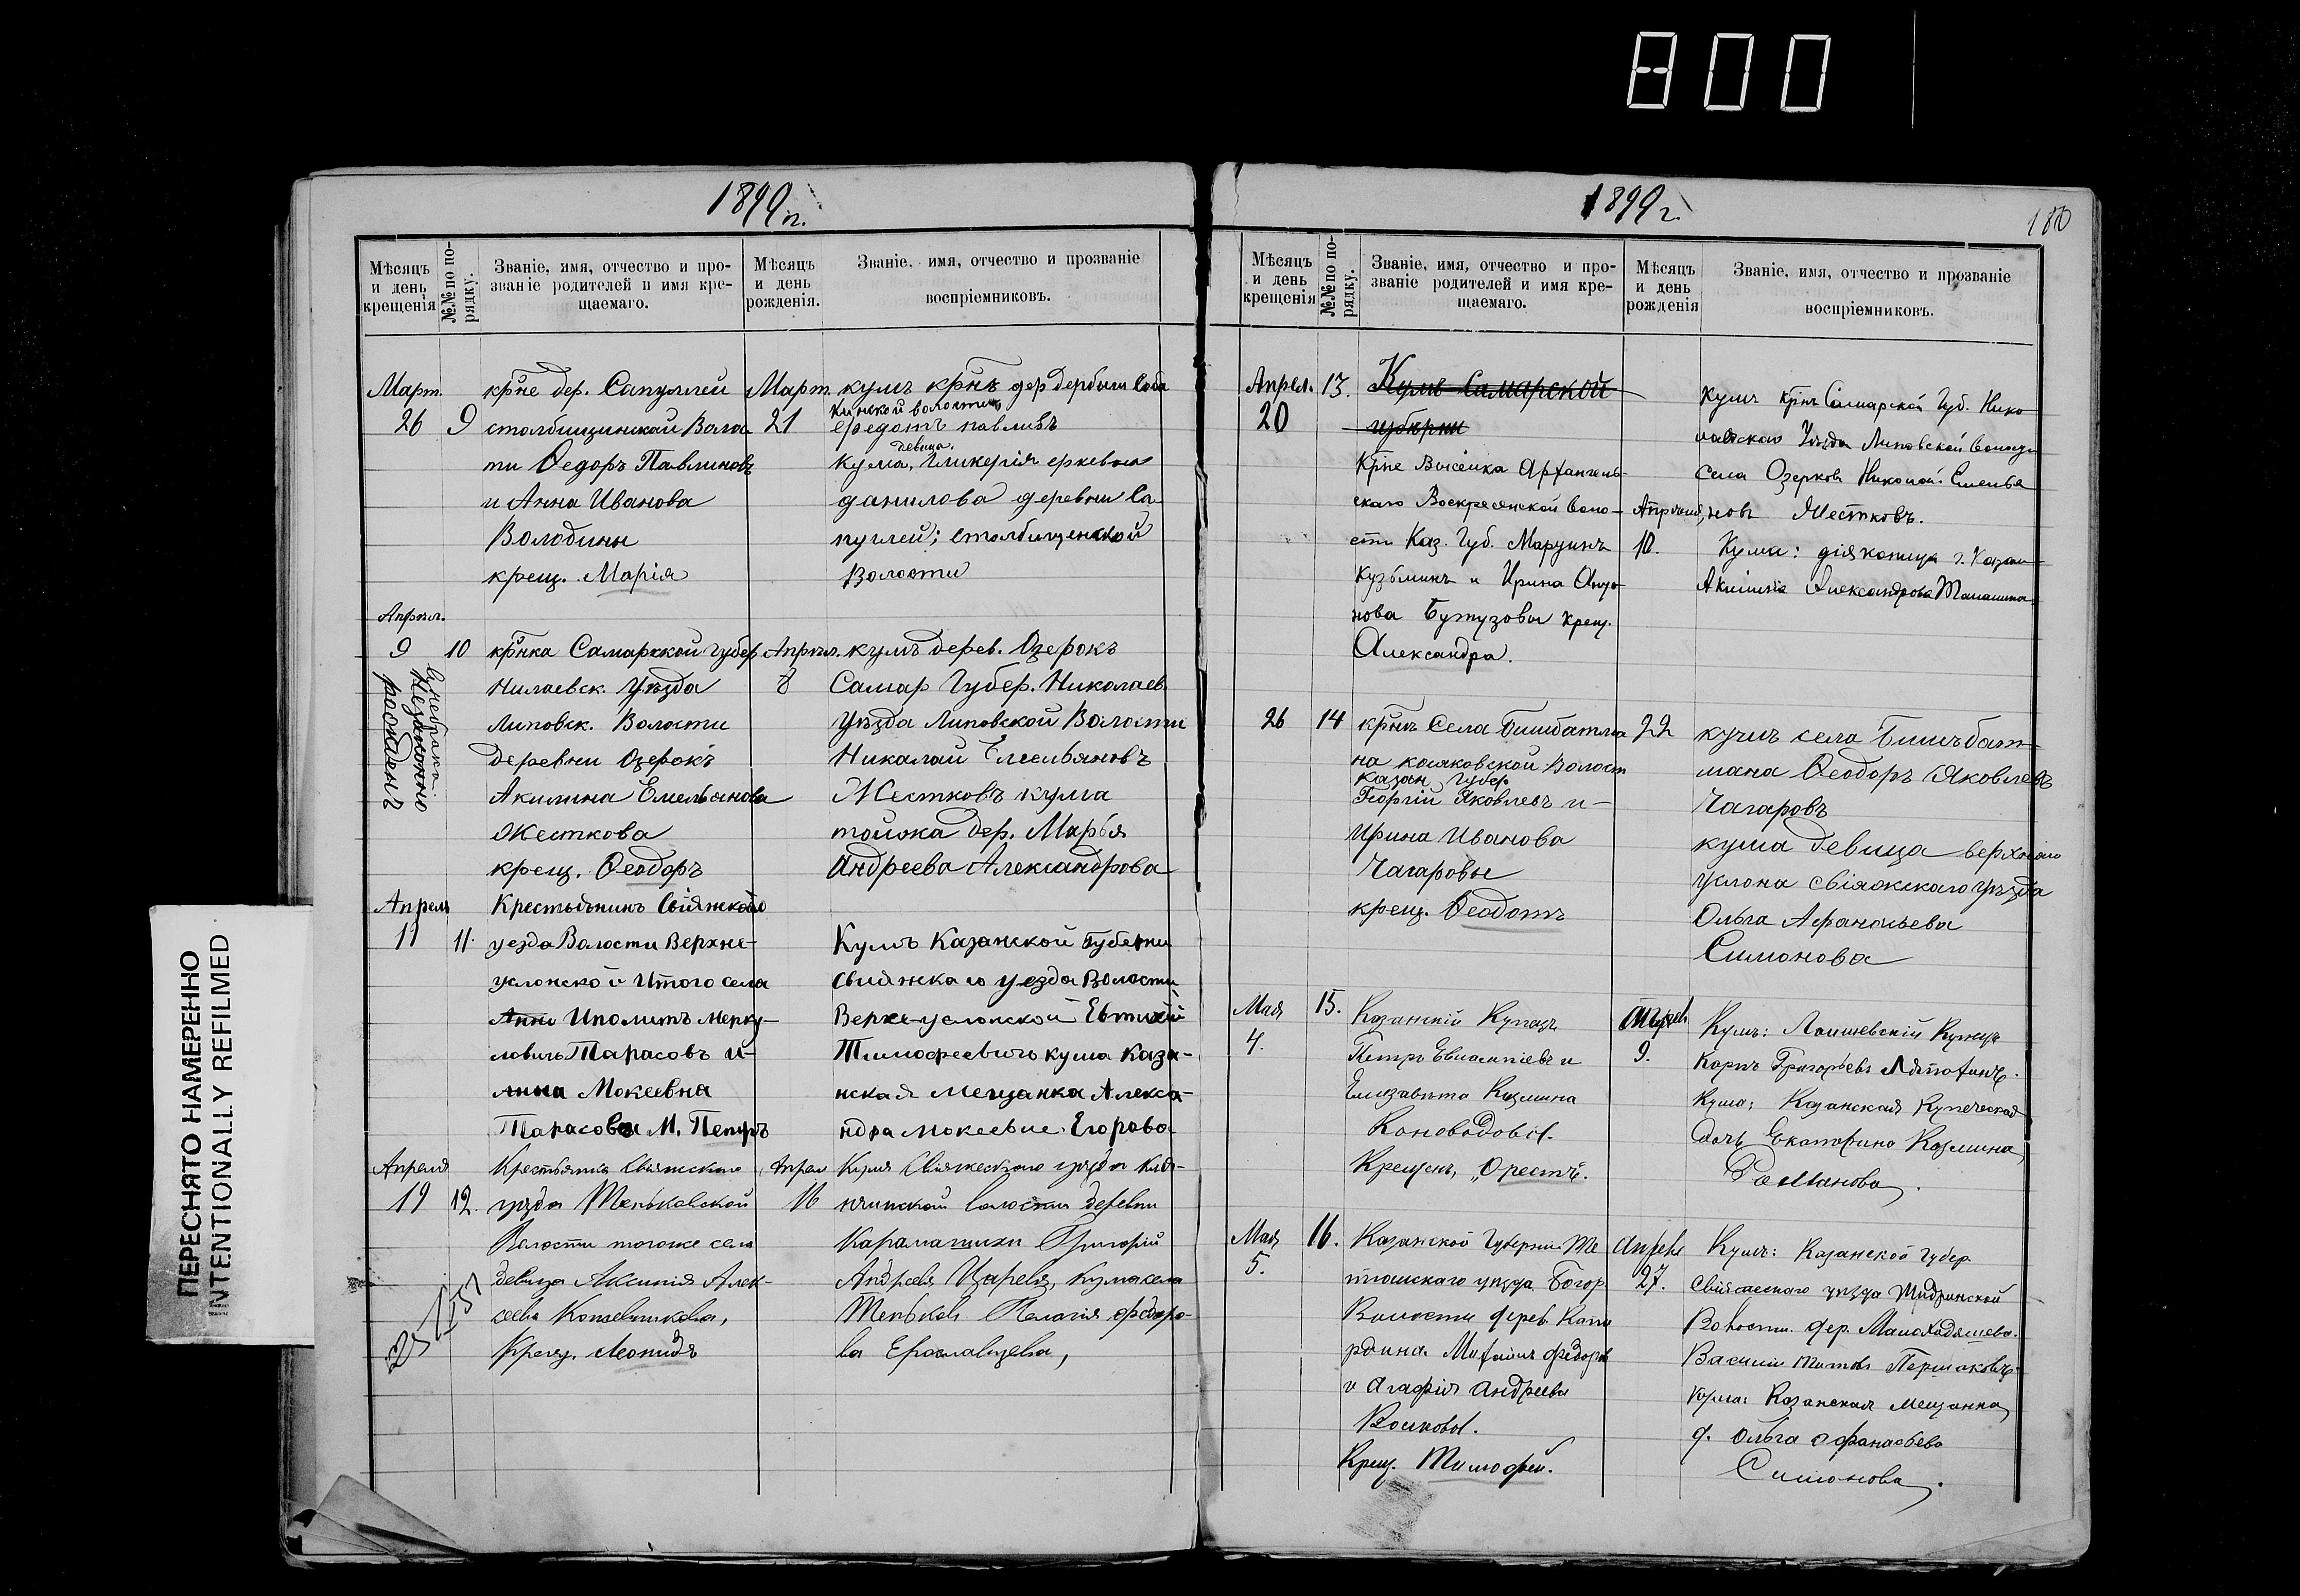 800
1899 г.
Мѣсяцъ и день крещенія
№№ по порядку.
Званіе, имя, отчество и прозваніе родителей и имя крещаемаго.
Мѣсяцъ и день рожденія.
Званіе, имя, отчество и прозваніе воспріемниковъ.
Март. 26
9
крне дер. Сапуглей
столбищинской Волос
ти Ѳедоръ Павлиновъ
и Анна Иванова
Володины
крещ. Марія
Март. 21
кумъ крнъ дер дербыш
девица
кума, Гликерія
данилова деревни Са
пуглей; столбищенской
Волости
Апрѣл.
9
10
незаконно рожденъ
крнка Самарской губер
Нилаевск. Уѣзда
Липовск. Волости
деревни Озерокъ
Акилина Емельянова
Жесткова
крещ. Ѳеодоръ
Апрѣл. 8
кумъ дерев. Озерокъ
Самар Губер. Николаев.
Уѣзда Липовской Волости
Николай Емельяновъ
Жестковъ кума
тойжа дер. Марья
Андреева Александрова
Апреля
11
11.
Крестьянинъ Свіяжскаго
уезда Волости Верхне-
услонской Итого села
Иполитъ Мерку-
ловичъ Тарасовъ и-
Анна Мокеевна
Тарасовы М. Петръ
Кумъ Казанской Губерни
Свияжкаго уезда Волости
Верхе-услонской Евтихій
Тимофеевичъ кума Каза-
нская Мещанка Алекса-
ндра Мокеевне Егорова
Апреля
19
12.
Крестьянка Свіяжскаго
уѣзда Теньковской
Волости тогоже села
девица Аксинія Алек-
сеева Кожевникова,
Крещ. Леонидъ
Апрел 16
Кумъ Свіяжскаго уѣзда Кля-
нчинской волости деревни
Карамашихи Григорій
Андреевъ Царевъ, Кума села
Теньковъ Пелагія Федоро-
ва Ерославцева,
1899 г.
180
Мѣсяцъ и день крещенія
№№ по порядку.
Званіе, имя, отчество и прозваніе родителей и имя крещаемаго.
Мѣсяцъ и день рожденія
Званіе, имя, отчество и прозваніе воспріемниковъ.
Апрел. 20
13.
Кумъ Самарской
губерни
Крне Высёлка Архангель-
скаго Воскресенской воло-
сти Каз. Губ.
Кузьминъ и Ирина
Бутузовы крещ.
Александра.
10.
Кумъ Крнъ Самарской Губ. Нико
лаевскаго Уѣзда Липовской волости
Села Озерковъ Николай Емелья
новъ Жестковъ.
Кума: діяконица г. Казани
Александрова
26
14
крнъ Села Бишбатма
на кояковской Волост
Казан Губер
Георгій Яковлевъ и-
Ирина Иванова
Чагаровы
крещ. Ѳеодотъ
22
кумъ села Бишъбат-
мана Ѳеодоръ Яковлевъ
Чагаровъ
кума девица верхняго
Услона свіяжскаго уѣзда
Ольга Афанасьева
Симонова
Мая
4.
15.
Казанскій Купецъ
Петръ Евлампіевъ и
Елизавета Козмина
Коноводовы.
Крещенъ, „Орестъ".
9.
Кумъ: Лаишевскій Купецъ
Карпъ Григорьевъ
Кума: Казанская Купеческая
дочь Екатерина Козмина,
Романова.
Мая
5.
16.
Казанской Губернии Те
тюшскаго уѣзда Богор
Волости дерев.
Михаилъ Федоровъ
и Агафія Андреева
Волковы.
Крещ. Тимофей.
Апрель 27.
Кумъ: Казанской губер.
Свіяжскаго уѣзда Ширданской
Волости. дер.
Василій Титовъ
Кума: Казанская мещанка,
д. Ольга Афанасьева
Симонова.
ПЕРЕСНЯТО НАМЕРЕННО
INTENTIONALLY REFILMED